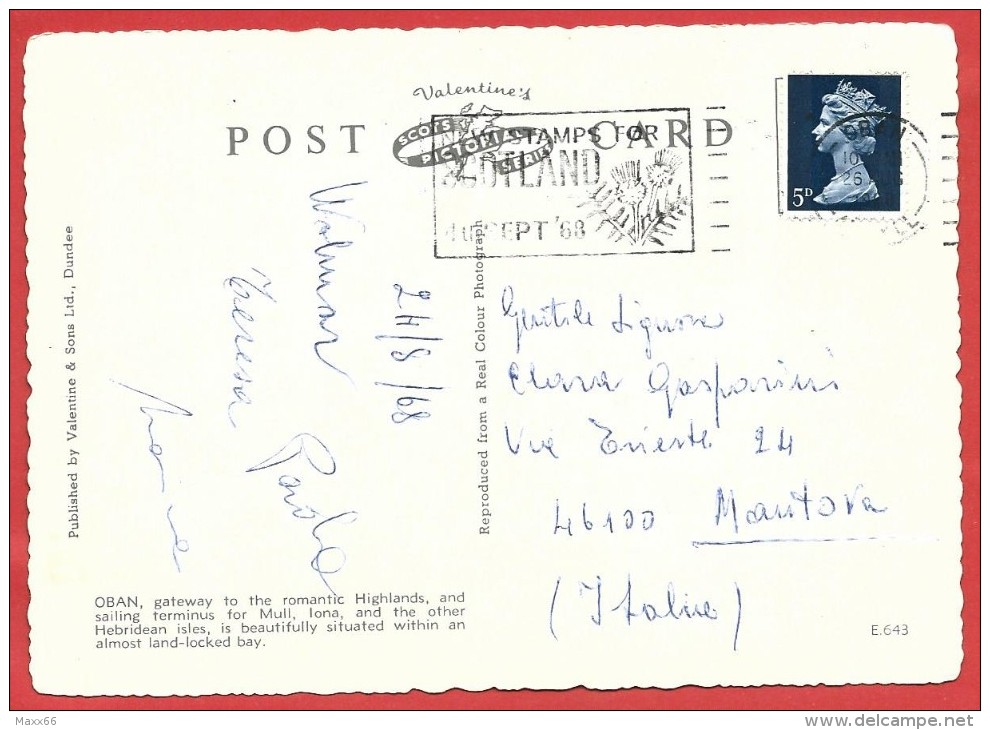 Valentine's
POST CARD
SCOTS
PICTORIAL
SERIES
STAMPS FOR
SCOTLAND
4th SEPT '68
OBAN
26
5D
24/8/68
Teresa
Paola
Gentile Signora
Clara Gasparini
Via Trieste 24
46100 Mantova
(Italie)
Published by Valentine & Sons Ltd., Dundee
Reproduced from a Real Colour Photograph
OBAN, gateway to the romantic Highlands, and
sailing terminus for Mull, Iona, and the other
Hebridean isles, is beautifully situated within an
almost land-locked bay.
E.643
Maxx66
www.delcampe.net